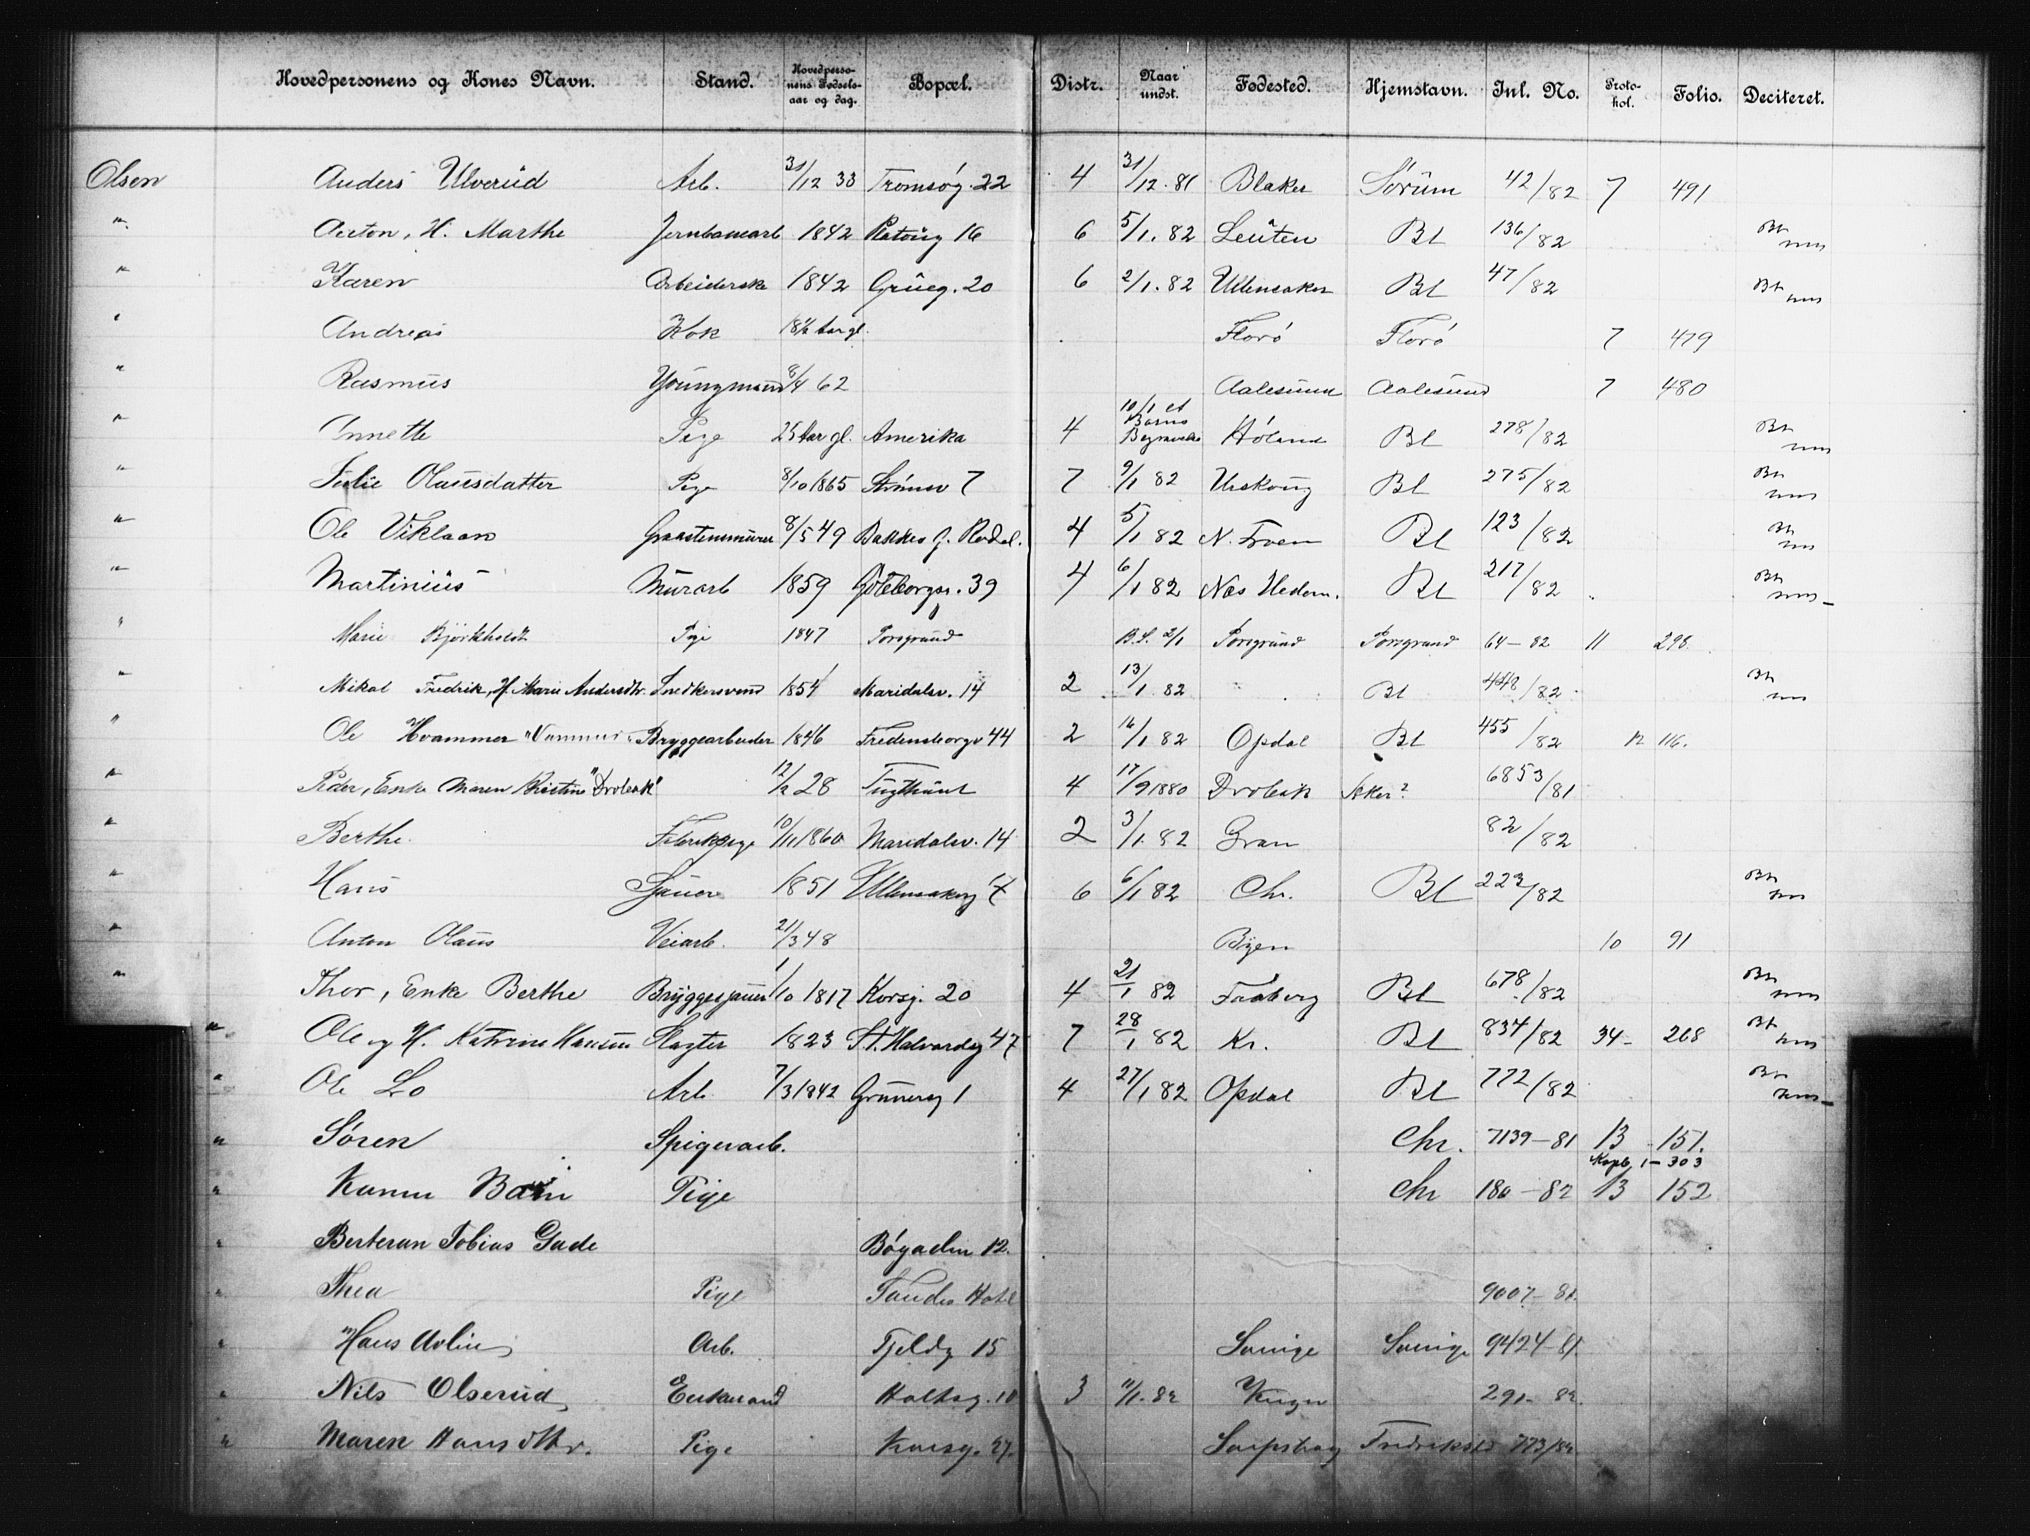 Hovedpersonens og Kones Navn. Stand. Hovedpersonens Fødselsaar og dag. Bopæl. Distr. Naar undst. Fødested. Hjemstavn. Inl. No. Protokol. Folio. Deciteret.
Olsen Anders Ulverud Arb. 31/12 33 Tromsög. 22 4 31/12. 81 Blaker Sörum 42/82 7 491
" Anton, H. Marthe Jernbanearb 1842 Platoug 16 6 5/1. 82 Leuten Bl 136/82
" Karen Arbeiderske 1842 Grüeg. 20 6 2/1. 82 Ullensaker Bl 47/82
" Andreas Kok 18½ Aar gl. Florö Florö 7 479
" Rasmus Youngmand 8/4 62 Aalesund Aalesund 7 480
" Annette Pige 25 Aar gl. Amerika 4 10/1 et Barns Begravelse Höland Bl 278/82
" Julie Olausdatter Pige 8/10 1865 Strömsv 7 7 9/1 82 Urskoug Bl 275/82
" Ole Viklaan Graastensmurer 8/5 49 Bakkes g. Rodel. 4 5/1 82 N. Fron Bl 123/82
" Martinius Murarb 1859 Göteborgs. 39 4 6/1 82 Næs Hedem. Bl 217/82
" Marie Björkholdt Pige 1847 Porsgrund B.S. 2/1 Porsgrund Porsgrund 64-82 11 298
" Mikal Fredrik, H. Marie Andersdtr. Snedkersvend 1854 Maridalsv. 14 2 13/1. 82 Bl 448/82
" Ole Hvammer Bryggearbeider 1846 Fredensborgv 44 2 16/1 82 Opdal Bl 455/82 12 116.
" Peder, Enke Maren Kristine "Drobak" 12/2 28 Tugthuset 4 17/9 1880 Drobak Aker? 6853/81
" Berthe Fabrikpige 10/11 1860 Maridalsv. 14 2 3/1. 82 Gran 82/82
" Hans Sjauer 1851 Ullensakerg 7 6 6/1 82 Chr. Bl 223/82
" Anton Olaus Veiarb. 21/3 48 Byen 10 91
" Thor, Enke Berthe Bryggesjauer 1/10 1817 Korsg. 20 4 21/1 82 Faaberg Bl 678/82
" Ole og H. Katrine Hansen Slagter 1823 St. Halvardsg 47 7 28/1 82 Kr. Bl 834/82 34- 268
" Ole Lo Arb. 7/3 1842 Grünerg 1 4 27/1 82 Opdal Bl 772/82
" Sören Spigerarb. Chr. 7139-81 13 151.
Kopb. 1-303
" Pige Chr 180-82 13 152
" Berteran Tobias Gade Bögaden 12.
" Thea Pige Tandes Hotel 9007-81.
" Hans Avlin Arb. Fjeldg 15 Sverige Sverige 9424-81.
" Nils Olserud Enkemand Holtsg. 10 3 11/1. 82 291-82.
" Maren Hansdtr. Pige Korsg. 27. Sarpsborg Fredriksst 773/82